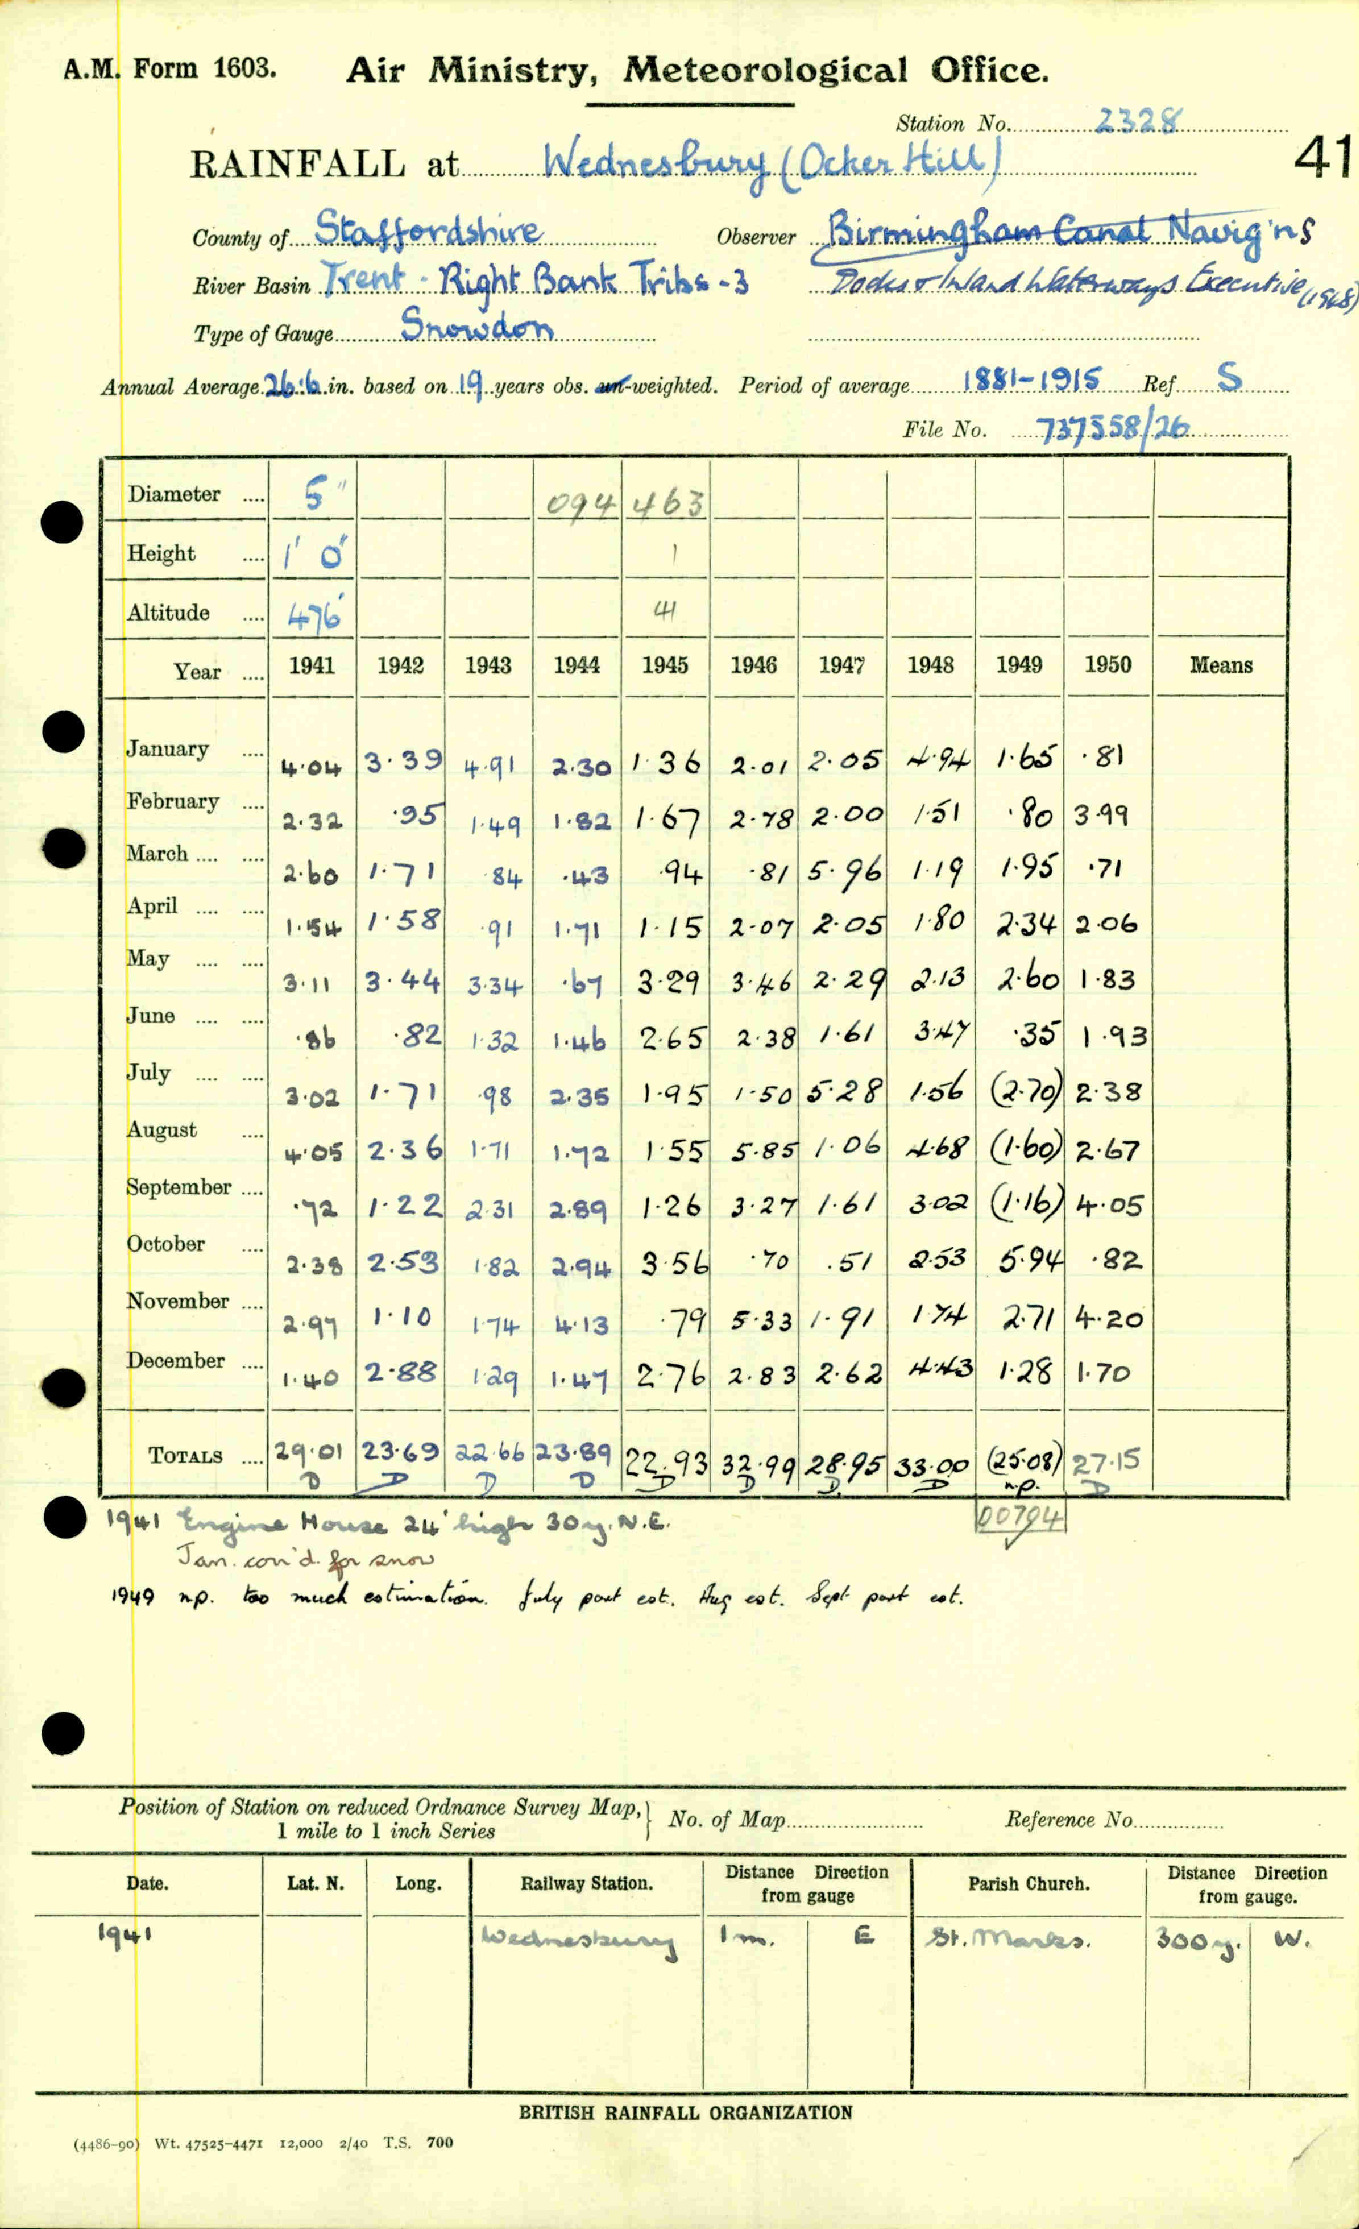 A.M. Form 1603. Air Ministry, Meteorological Office.
Station No. 2328
RAINFALL at Wednesbury (Ocker Hill) 41
County of Staffordshire Observer Birmingham Canal Navig'ns
River Basin Trent - Right Bank Tribs - 3 Docks & Inland Waterways Executive (1948)
Type of Gauge Snowdon
Annual Average 26.6 in. based on 19 years obs. un-weighted. Period of average 1881-1915 Ref. S
File No. 737558/26
Diameter .... 5" 094 463
Height .... 1' 0" 1
Altitude .... 476' 41
Year .... 1941 1942 1943 1944 1945 1946 1947 1948 1949 1950 Means
January .... 4.04 3.39 4.91 2.30 1.36 2.01 2.05 4.94 1.65 .81
February .... 2.32 .95 1.49 1.82 1.67 2.78 2.00 1.51 .80 3.99
March .... .... 2.60 1.71 .84 .43 .94 .81 5.96 1.19 1.95 .71
April .... .... 1.54 1.58 .91 1.71 1.15 2.07 2.05 1.80 2.34 2.06
May .... .... 3.11 3.44 3.34 .67 3.29 3.46 2.29 2.13 2.60 1.83
June .... .... .86 .82 1.32 1.46 2.65 2.38 1.61 3.47 .35 1.93
July .... .... 3.02 1.71 .98 2.35 1.95 1.50 5.28 1.56 (2.70) 2.38
August .... 4.05 2.36 1.71 1.72 1.55 5.85 1.06 4.68 (1.60) 2.67
September .... .72 1.22 2.31 2.89 1.26 3.27 1.61 3.02 (1.16) 4.05
October .... 2.38 2.53 1.82 2.94 3.56 .70 .51 2.53 5.94 .82
November .... 2.97 1.10 1.74 4.13 .79 5.33 1.91 1.74 2.71 4.20
December .... 1.40 2.88 1.29 1.47 2.76 2.83 2.62 4.43 1.28 1.70
TOTALS .... 29.01 23.69 22.66 23.89 22.93 32.99 28.95 33.00 (25.08) 27.15
D D D D D D D D n.p. D
1941 Engine House 24' high 30y. N.E. 00794
Jan. con'd for snow
1949 n.p. too much estimation. July part est. Aug est. Sept part est.
Position of Station on reduced Ordnance Survey Map, 1 mile to 1 inch Series } No. of Map Reference No.
Date. Lat. N. Long. Railway Station. Distance Direction from gauge Parish Church. Distance Direction from gauge.
1941 Wednesbury 1 m. E St. Marks. 300 y. W.
BRITISH RAINFALL ORGANIZATION
(4486-90) Wt. 47525-4471 12,000 2/40 T.S. 700